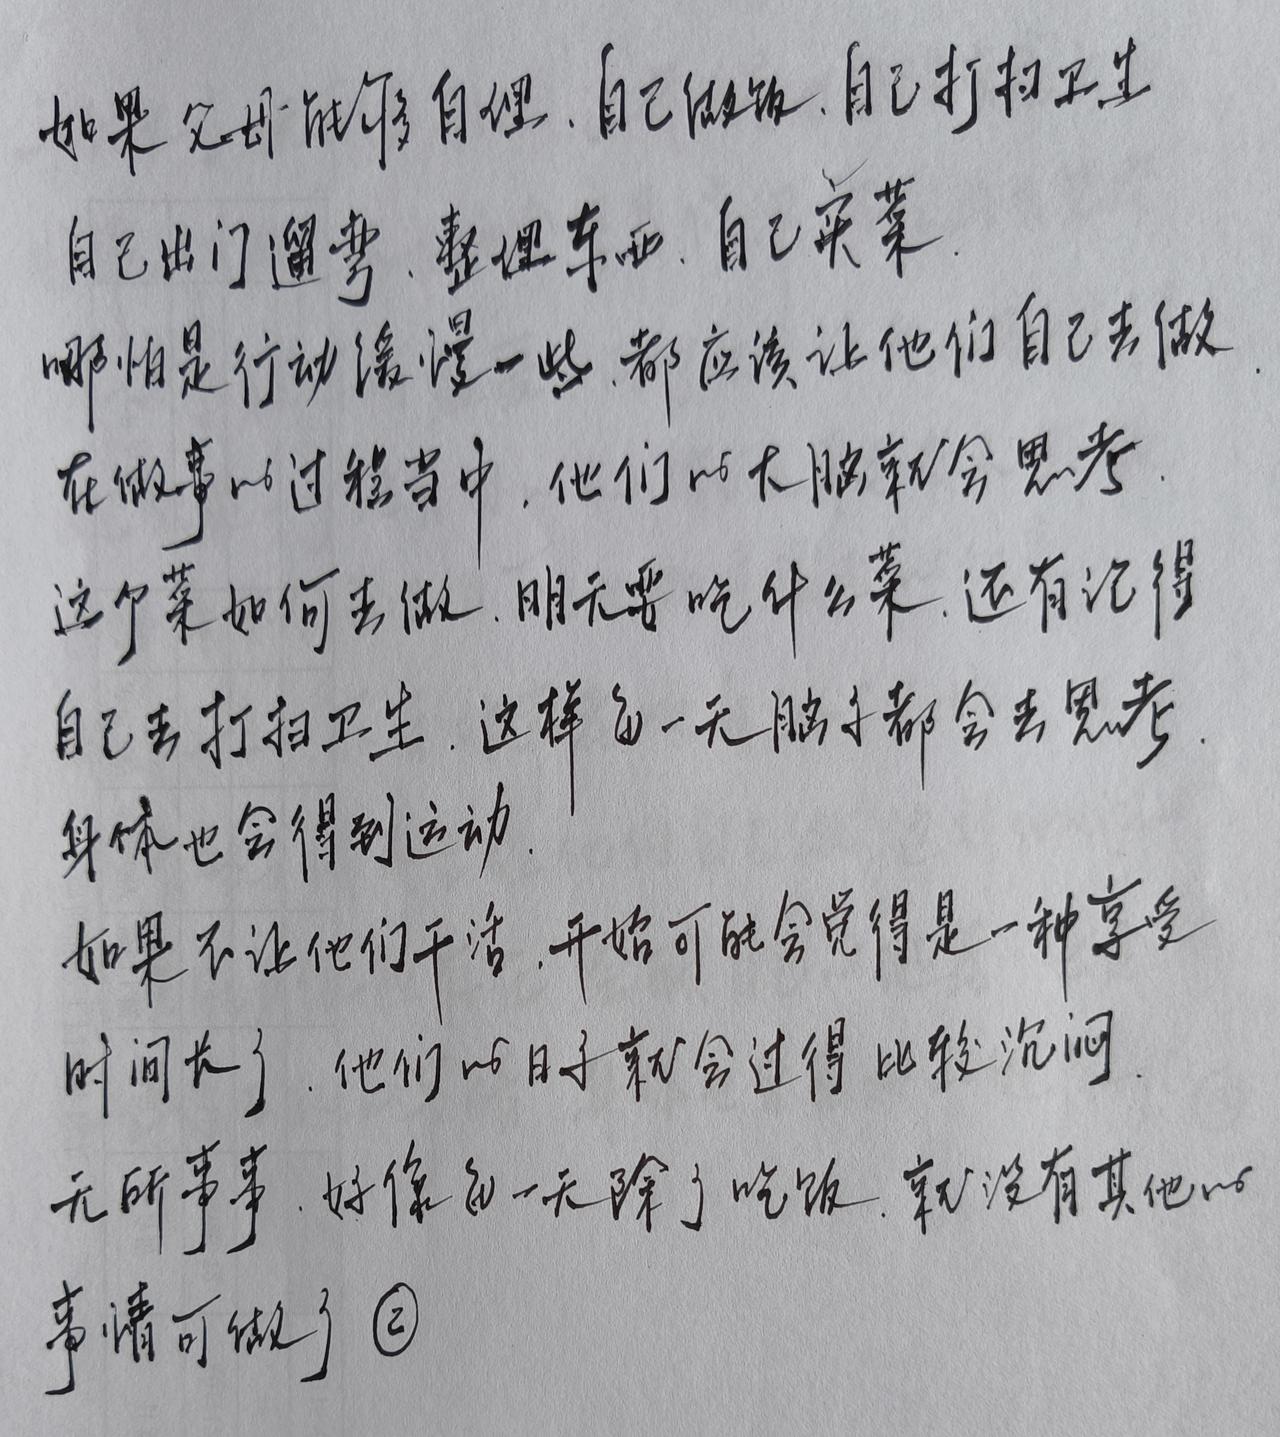 如果父母能够自理、自己做饭、自己打扫卫生
自己出门遛弯、整理东西、自己买菜.
哪怕是行动缓慢一些、都应该让他们自己去做.
在做事的过程当中,他们的大脑就会思考.
这个菜如何去做、明天要吃什么菜、还有记得
自己去打扫卫生.这样每一天脑子都会去思考.
身体也会得到运动.
如果不让他们干活,开始可能会觉得是一种享受
时间长了、他们的日子就会过得比较沉闷.
无所事事、好像每一天除了吃饭、就没有其他的
事情可做了②